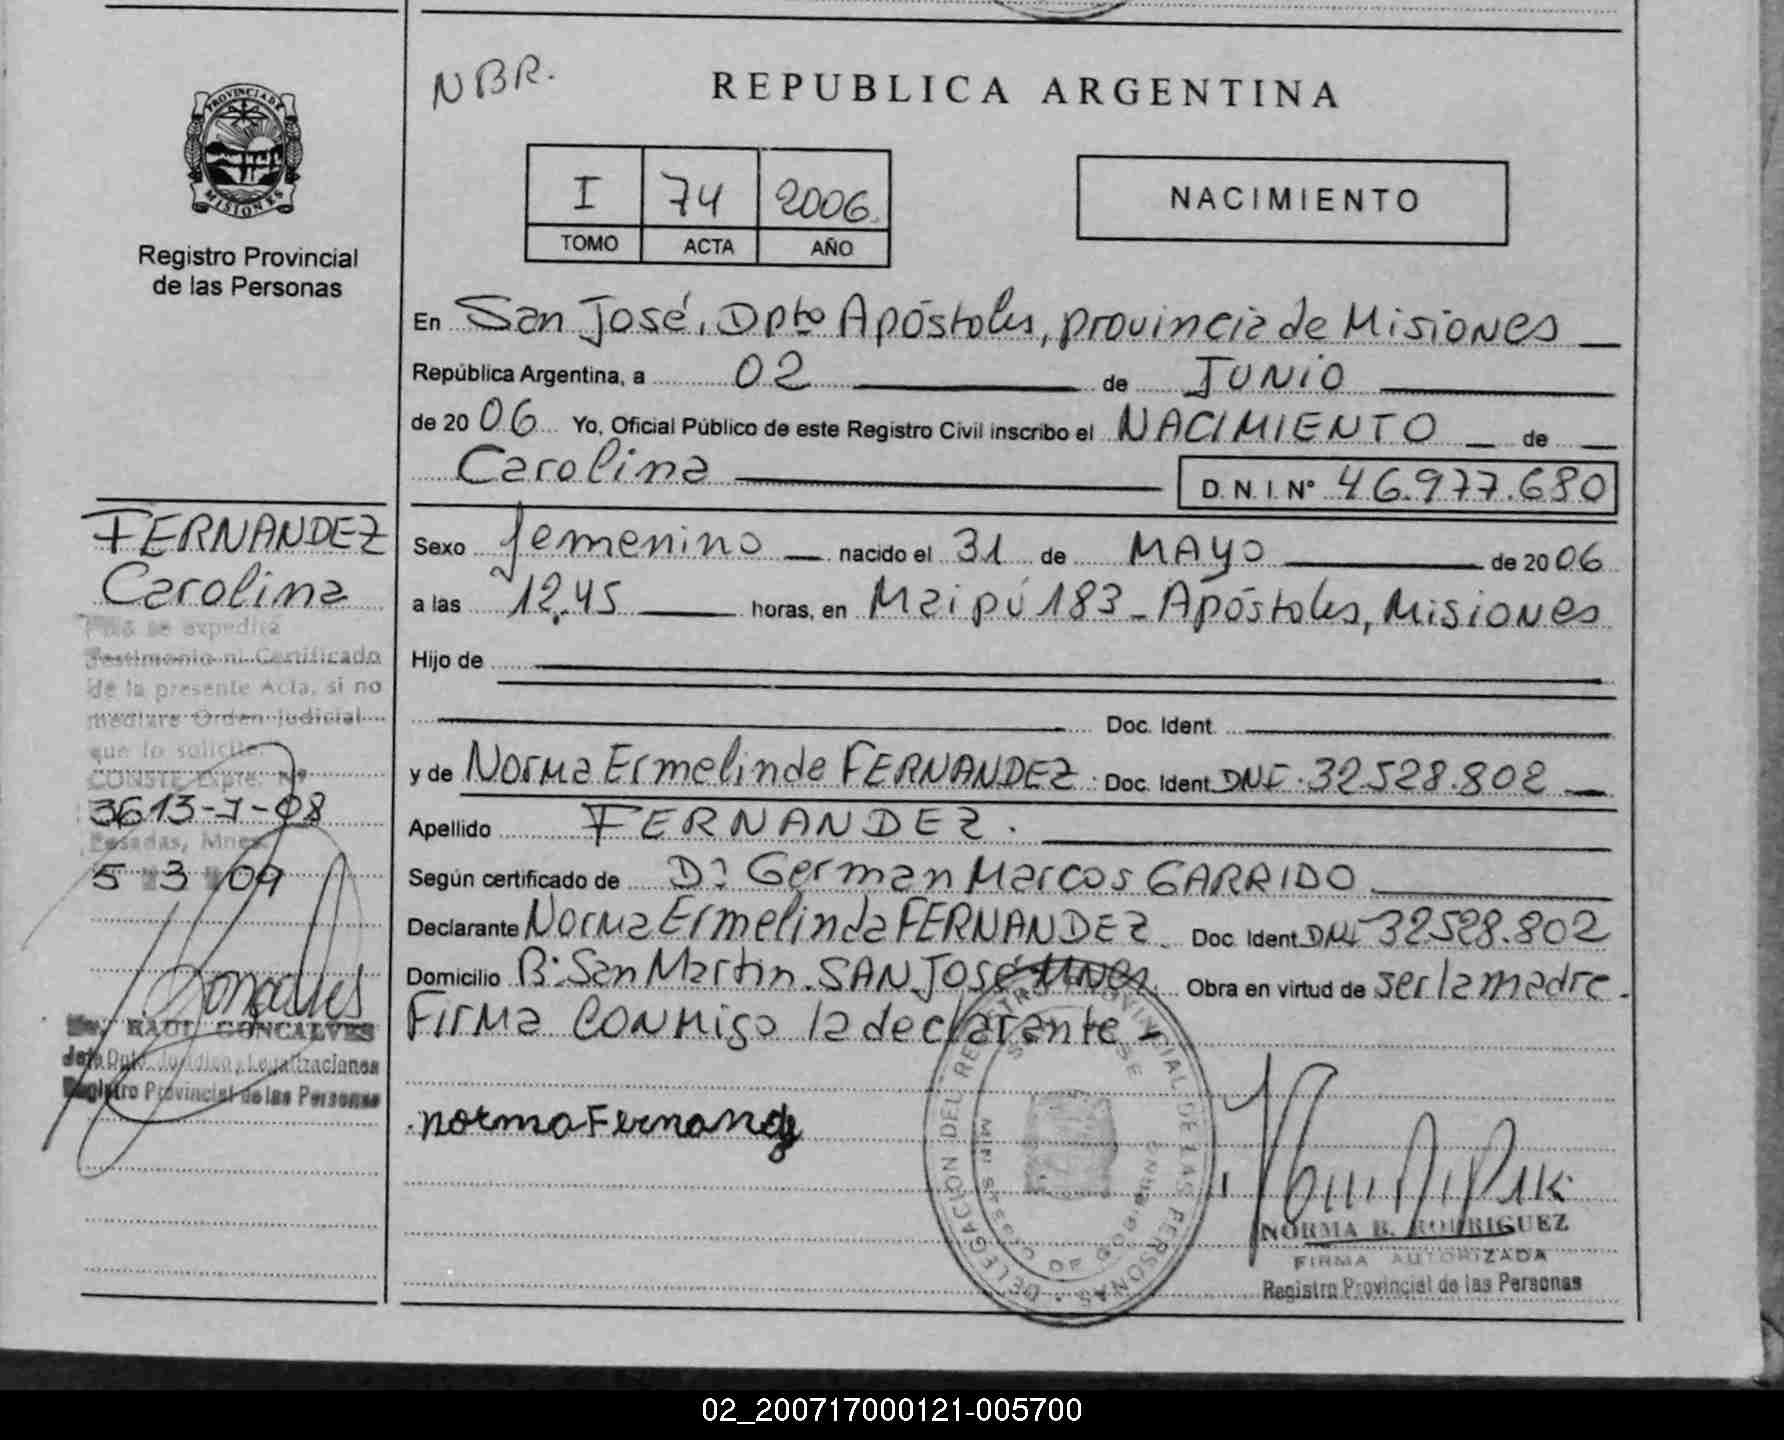 NBR.
REPUBLICA ARGENTINA
PROVINCIA DE
MISIONES
Registro Provincial
de las Personas
I 74 2006.
TOMO ACTA AÑO
NACIMIENTO
En San José, Dpto Apóstoles, provincia de Misiones
República Argentina, a 02 de Junio
de 2006 Yo, Oficial Público de este Registro Civil inscribo el NACIMIENTO de
Carolina D.N.I. N° 46.977.680
Sexo femenino nacido el 31 de MAYO de 2006
a las 12,45 horas, en Maipú 183 - Apóstoles, Misiones
Hijo de
Doc. Ident.
y de Norma Ermelinda FERNANDEZ. Doc. Ident. DNI. 32.528.802
Apellido FERNANDEZ.
Según certificado de Dr German Marcos GARRIDO
Declarante Norma Ermelinda FERNANDEZ. Doc. Ident. DNI 32.528.802
Domicilio B: San Martin. SAN JOSé Mnes. Obra en virtud de ser la madre.
Firma conmigo la declarante -
norma Fernandez
NORMA B. RODRIGUEZ
FIRMA AUTORIZADA
Registro Provincial de las Personas
DELEGACION DEL REGISTRO PROVINCIAL DE LAS PERSONAS
FERNANDEZ
Carolina
No se expedira
Testimonio ni Certificado
de la presente Acta, si no
mediare Orden Judicial
que lo solicite.
CONSTE Expte. Nº
3613-7-08
Posadas, Mnes.
5 3 09
RAUL GONCALVES
Jefe Dpto. Jurídico y Legalizaciones
Registro Provincial de las Personas
02_200717000121-005700